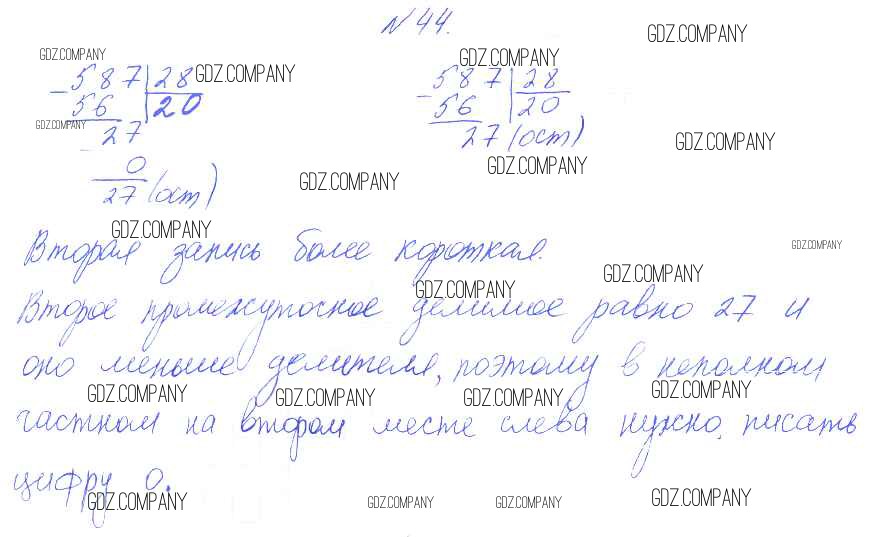 № 44.
GDZ.COMPANY
GDZ.COMPANY
GDZ.COMPANY
GDZ.COMPANY
_ 587 | 28
56 | 20
GDZ.COMPANY
_ 27
0
27 (ост)
_ 587 | 28
56 | 20
27 (ост)
GDZ.COMPANY
GDZ.COMPANY
GDZ.COMPANY
GDZ.COMPANY
Вторая запись более короткая.
GDZ.COMPANY
GDZ.COMPANY
GDZ.COMPANY
Второе промежуточное делимое равно 27 и
оно меньше делителя, поэтому в неполном
GDZ.COMPANY
GDZ.COMPANY
GDZ.COMPANY
GDZ.COMPANY
частном на втором месте слева нужно писать
цифру 0.
GDZ.COMPANY
GDZ.COMPANY
GDZ.COMPANY
GDZ.COMPANY